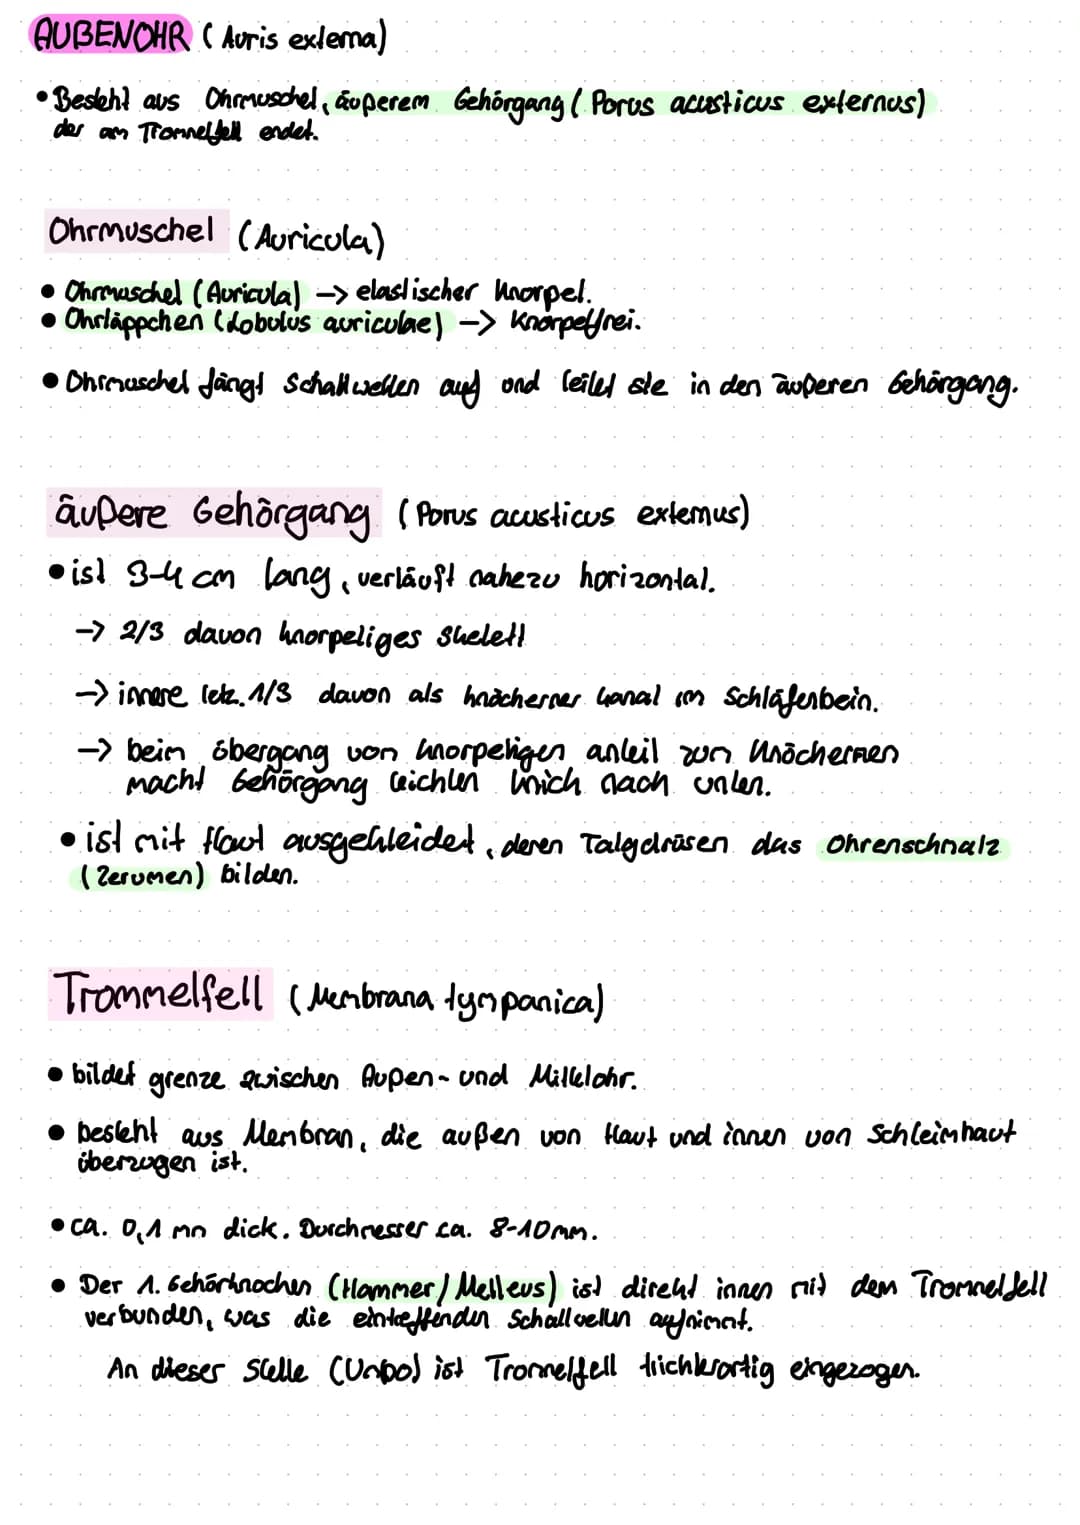 AUßENOHR (Auris externa)
• Besteht aus Ohrmuschel, äußerem Gehörgang (Porus acusticus externus)
der am Trommelfell endet.
Ohrmuschel (Auricula)
• Ohrmuschel (Auricula) -> elastischer Knorpel.
• Ohrläppchen (Lobulus auriculae) -> Knorpelfrei.
• Ohrmuschel fängt Schallwellen auf und leitet sie in den äußeren Gehörgang.
äußere Gehörgang (Porus acusticus externus)
• ist 3-4 cm lang, verläuft nahezu horizontal.
-> 2/3 davon knorpeliges Skelett
-> innere letz. 1/3 davon als knöcherner Kanal im Schläfenbein.
-> beim übergang von knorpeligen anteil zum Knöchernen
macht Gehörgang leichten Knick nach unten.
• ist mit Haut ausgekleidet, deren Talgdrüsen das Ohrenschmalz
(Zerumen) bilden.
Trommelfell (Membrana tympanica)
• bildet grenze zwischen Außen- und Mittelohr.
• besteht aus Membran, die außen von Haut und innen von Schleimhaut
überzogen ist.
• ca. 0,1 mm dick. Durchmesser ca. 8-10mm.
• Der 1. Gehörknochen (Hammer/Melleus) ist direkt innen mit dem Trommelfell
verbunden, was die eintreffenden Schallwellen aufnimmt.
An dieser Stelle (Umbo) ist Trommelfell trichterartig eingezogen.